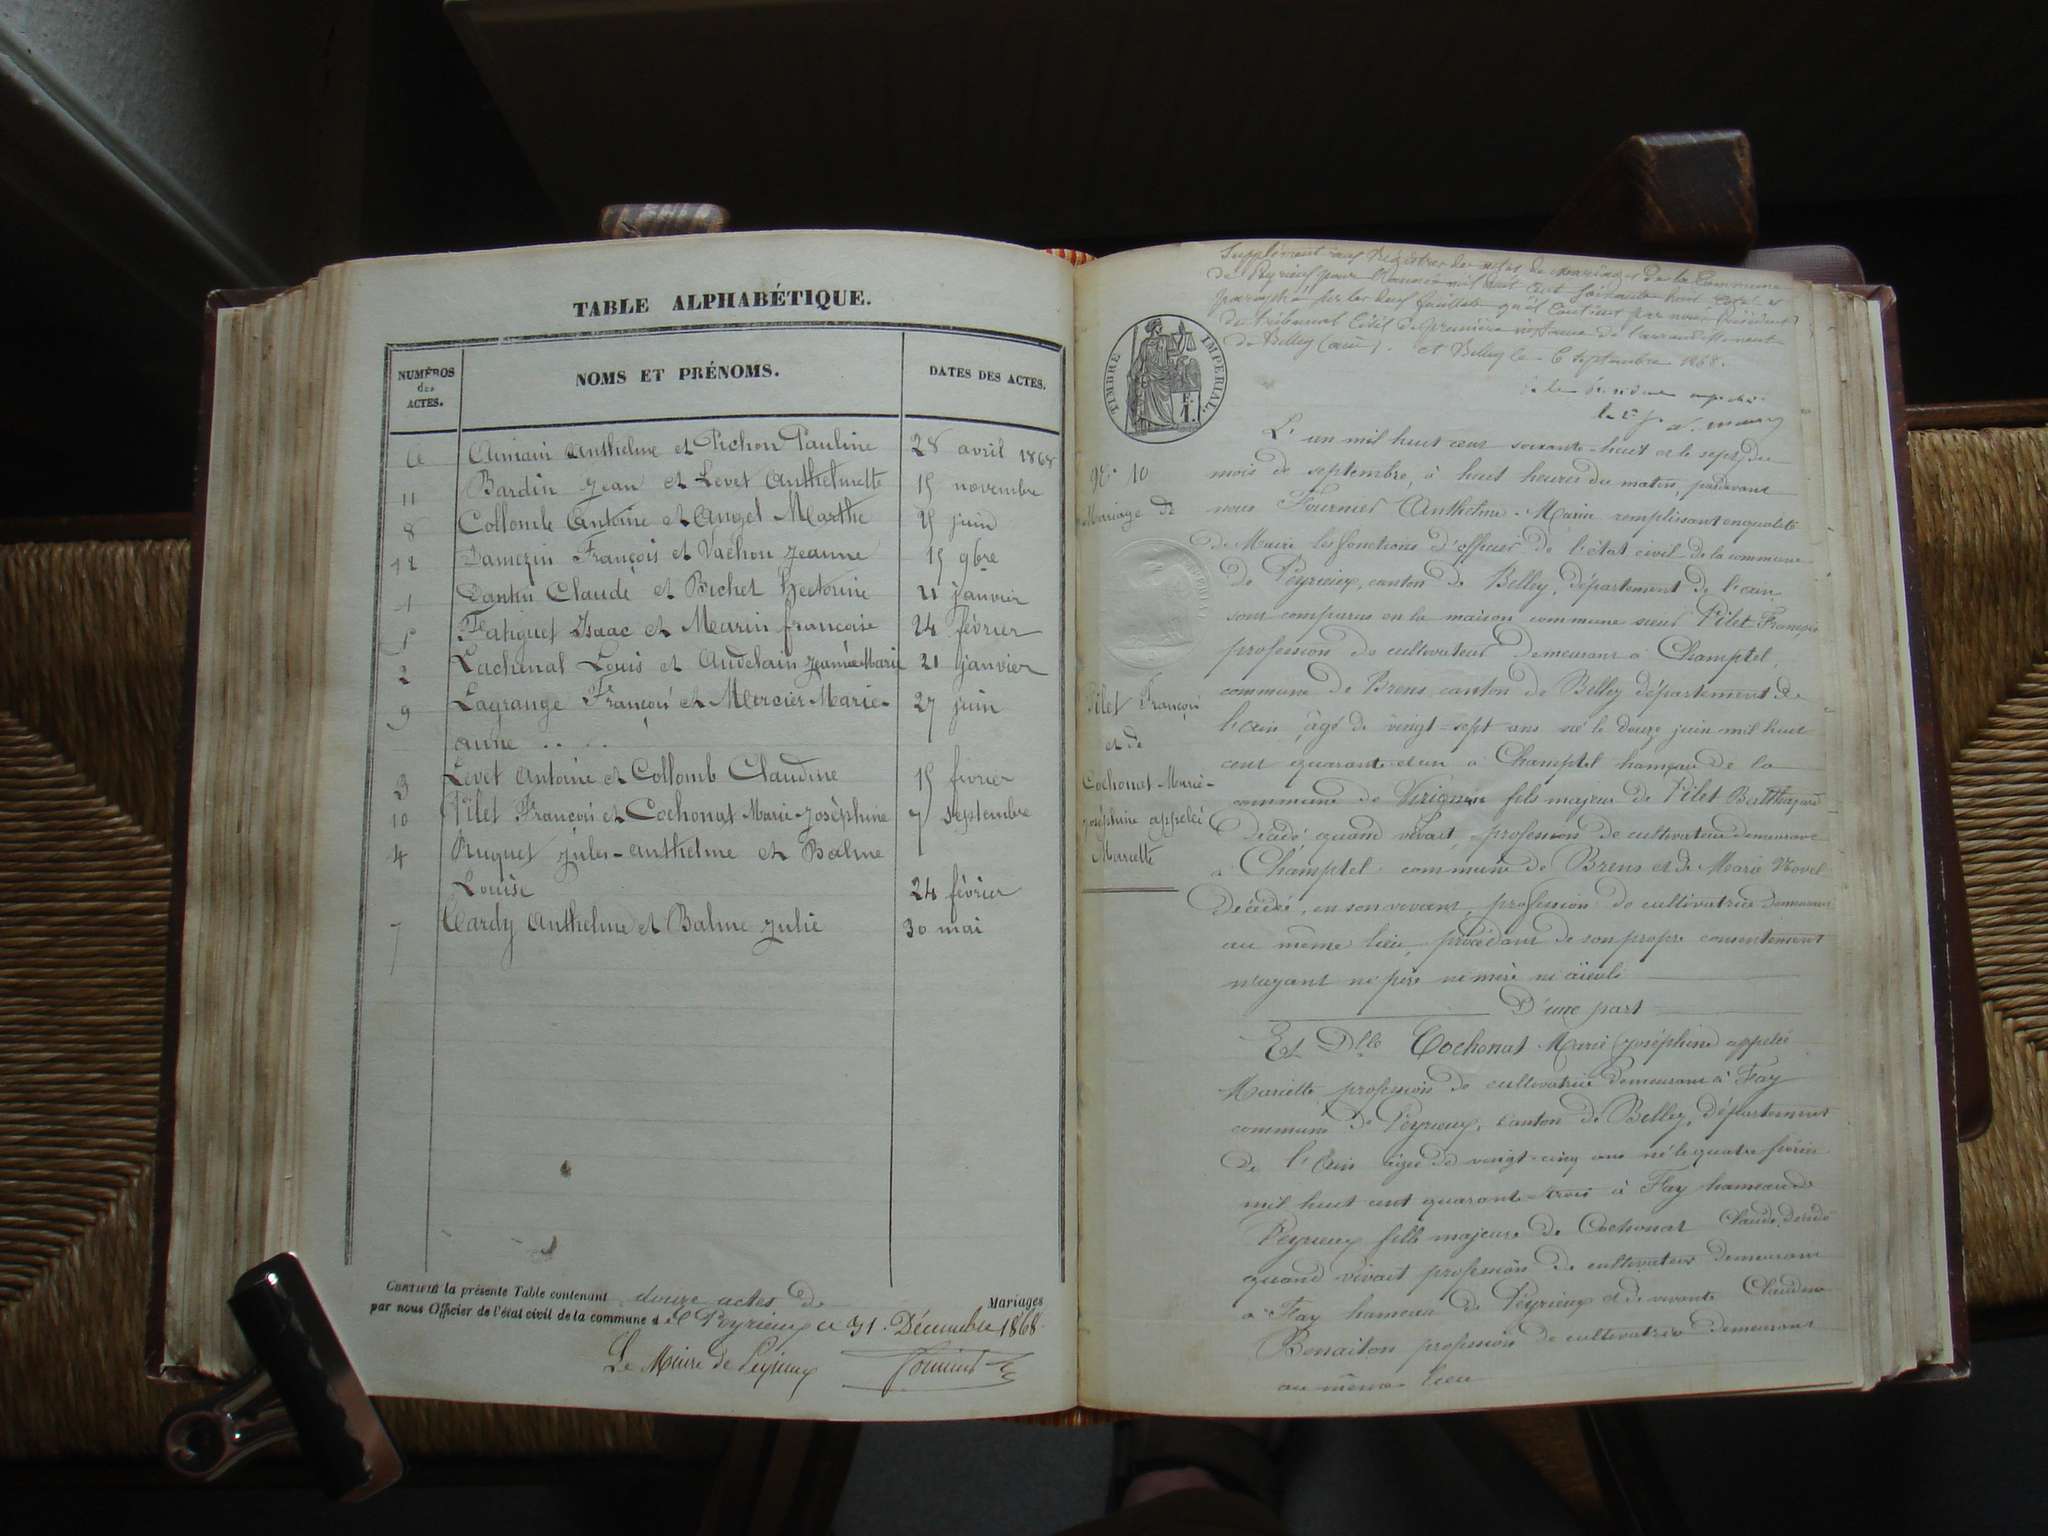 TABLE ALPHABÉTIQUE.
NUMÉROS des ACTES.
NOMS ET PRÉNOMS.
DATES DES ACTES.
6 Anthelme et Pichon Pauline 28 avril 1868
11 Bardin Jean et Levet Anthelmette 15 novembre
8 Collomb Antoine et Anget Marthe 25 juin
12 Damezin François et Vachon Jeanne 15 9bre
1 Dantin Claude et Bichet Hectorine 21 janvier
5 Fatiguet Isaac et Marin françoise 24 février
2 Lachenal Louis et Audelain Jeanne Marie 21 janvier
9 Lagrange François et Mercier Marie- 27 juin
anne
3 Levet Antoine et Collomb Claudine 15 février
10 Pilet François et Cochonat Marie-Joséphine 7 septembre
4 Ruquet Jules-anthelme et Balme
Louise 24 février
7 Tardy Anthelme et Balme Julie 30 mai
CERTIFIÉ la présente Table contenant douze actes de Mariages
par nous Officier de l'état civil de la commune d e Peyrieux ce 31 Décembre 1868.
Le Maire de Peyrieux Fournier
Supplément aux Régistres des actes de mariages de la Commune
de Peyrieux pour l'année mil huit cent soixante huit Coté et
paraphé sur les deux feuillets qu'il contient par nous Président
du tribunal Civil de première instance de l'arrondissement
de Belley (ain). et Belley le 6 septembre 1868.
TIMBRE IMPERIAL.
L'an mil huit cent soixante-huit et le sept du
N° 10
mois de septembre, à huit heures du matin, pardevant
Mariage de
nous Fournier Anthelme-Marin remplissant en qualité
de Maire les fonctions d'officier de l'état civil de la commune
de Peyrieux, canton de Belley, département de l'ain,
sont comparus en la maison commune sieur Pilet François
profession de cultivateur demeurant à Champtel,
commune de Brens, canton de Belley département de
Pilet François
l'ain, âgé de vingt-sept ans né le douze juin mil huit
et de
cent quarante et un à Champtel hameau de la
Cochonat-Marie-
commune de Virignin fils majeur de Pilet Balthazard
Joséphine appelée
décédé, quand vivait, profession de cultivateur demeurant
Mariette
à Champtel commune de Brens et de Marie Novel
décédée, en son vivant, profession de cultivatrice demeurant
au même lieu, procédant de son propre consentement
n'ayant ni père ni mère ni aïeuls
D'une part
Et Dlle Cochonat Marie Joséphine appelée
Mariette profession de cultivatrice demeurant à Fay
commune de Peyrieux, canton de Belley, département
de l'Ain âgée de vingt-cinq ans né le quatre février
mil huit cent quarante-trois à Fay hameau de
Peyrieux fille majeure de Cochonat Claude, décédé
quand vivait profession de cultivateur demeurant
à Fay hameau de Peyrieux et de vivante Claudine
Bonaiton profession de cultivatrice demeurant
au même lieu